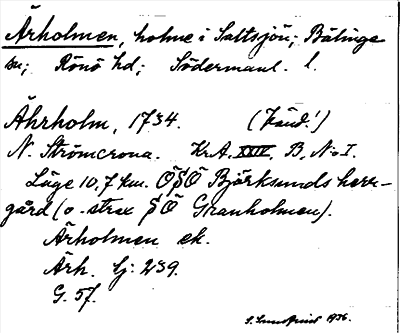 Ärholmen, holme i Saltsjön; Bälinge
sn; Rönö hd; Södermanl. l.
Ährholm, 1734. (Händ.!)
N. Strömcrona. Kr.A. XXIV, B, No I.
Läge 10,7 km. OSO Björksunds herr-
gård (o. strax SO Granholmen).
Ärholmen ek.
Ärh. Gj: 239.
G. 57.
1936.